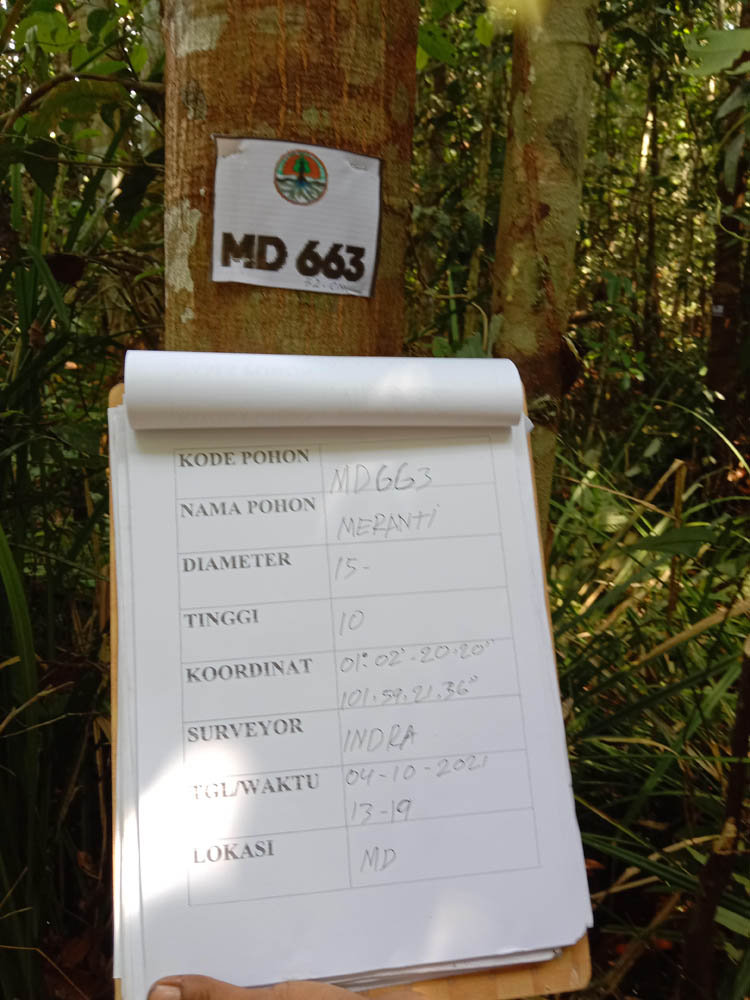 MD 663
KODE POHON MD663
NAMA POHON MERANTI
DIAMETER 15-
TINGGI 10
KOORDINAT 01°.02'.20.20"
101.59.21.36"
SURVEYOR INDRA
TGL/WAKTU 04-10-2021
13-19
LOKASI MD